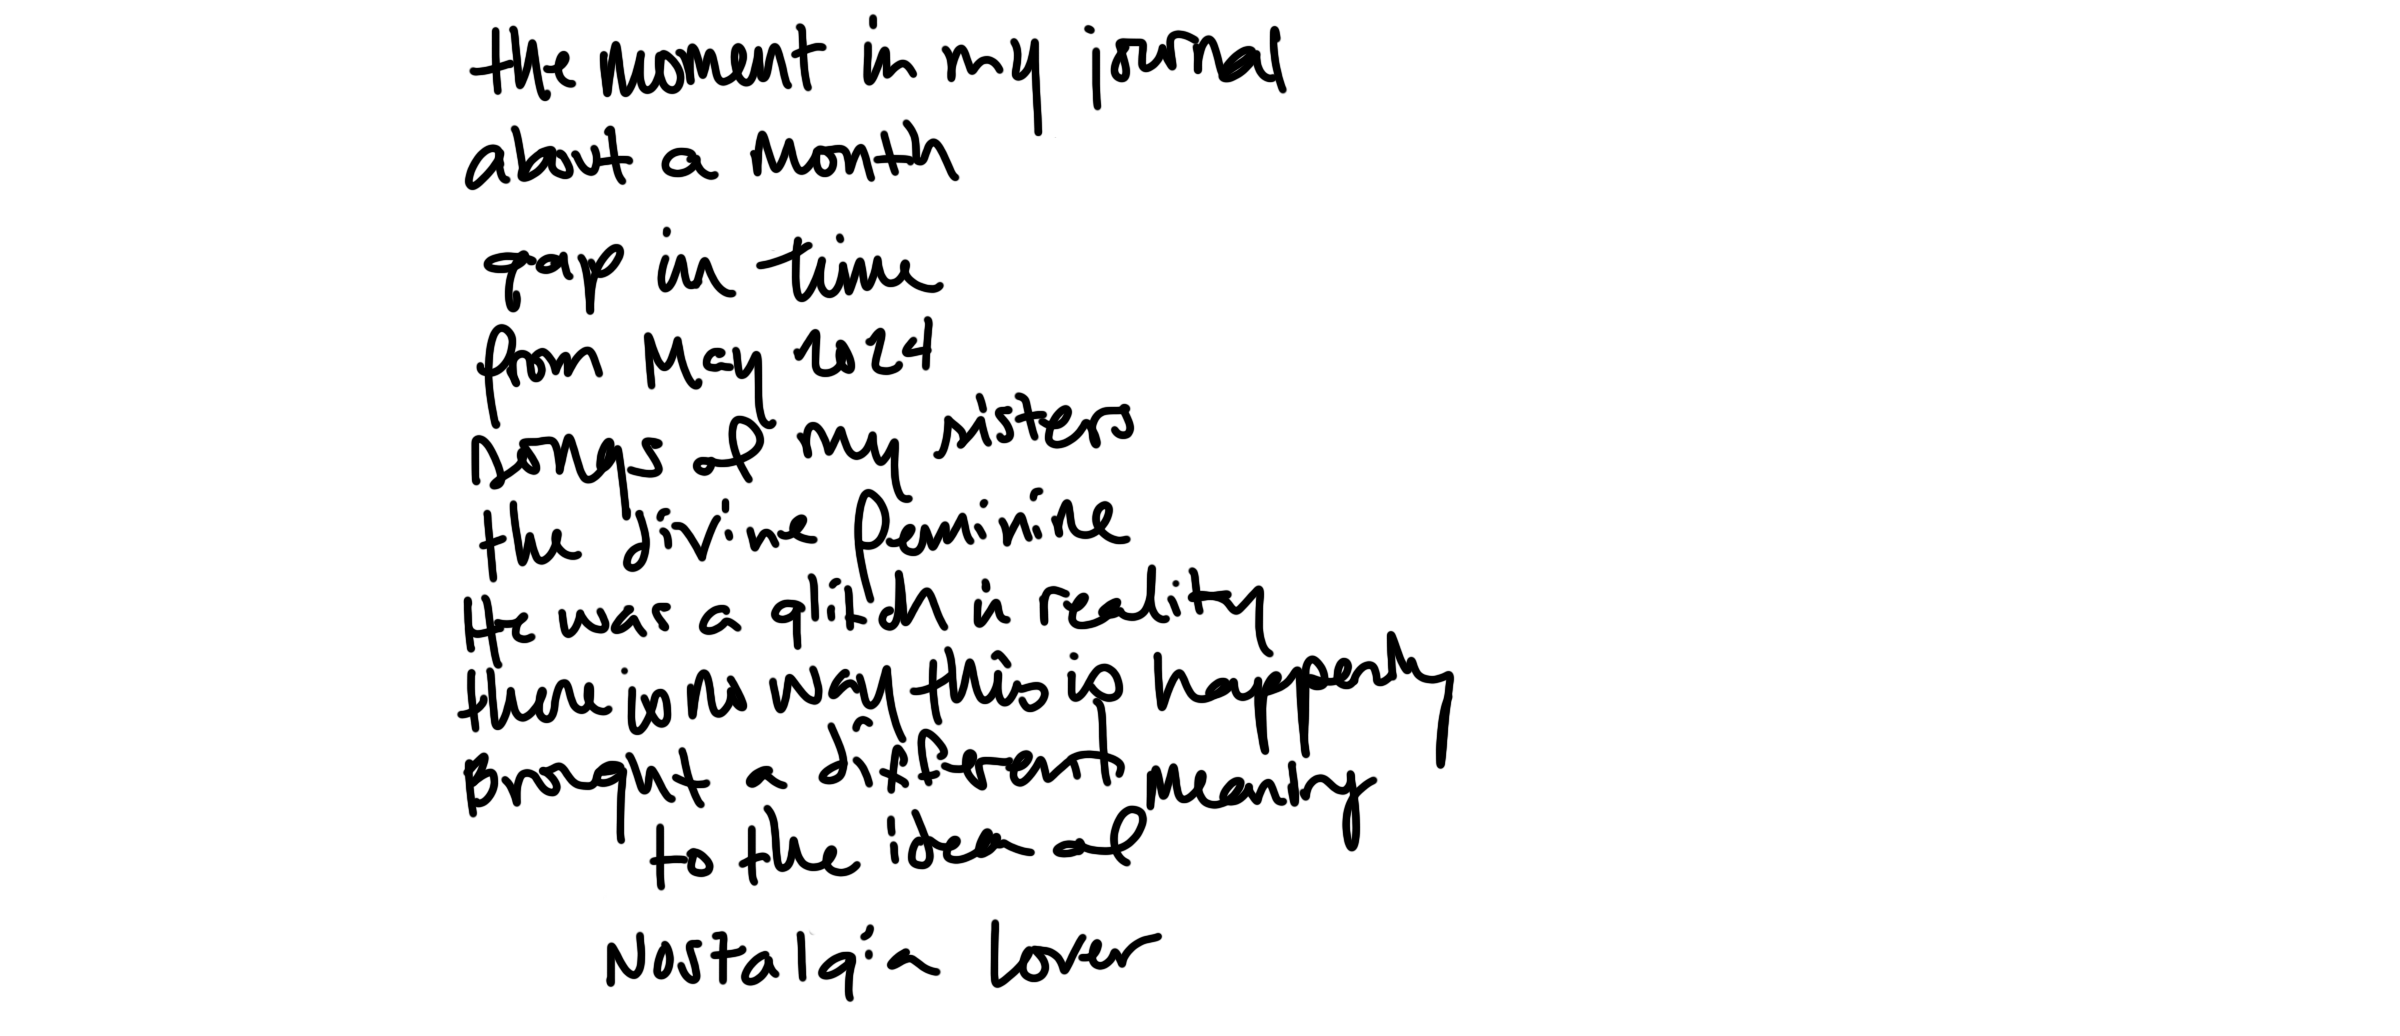 the moment in my journal
about a month
gap in time
from May 2024
songs of my sisters
the divine feminine
He was a glitch in reality
there is no way this is happening
Brought a different meaning
to the idea of
Nostalgia Lover